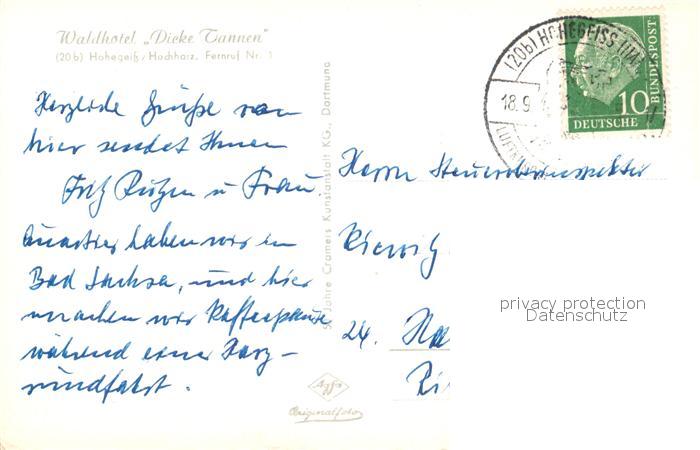 Waldhotel „Dicke Tannen"
(20b) Hohegeiß/Hochharz, Fernruf Nr. 1
Herzliche Grüße von
hier sendet Ihnen
Fritz u Frau.
Quartier haben wir in
Bad Sachsa, und hier
machen wir Kaffeepause
während einer Harz-
rundfahrt.
Jahre Cramers Kunstanstalt KG., Dortmund
Agfa
Originalfoto
(20b) HOHEGEISS (HA
18.9
LUFTK
10
DEUTSCHE
BUNDESPOST
Herrn Steueroberinspektor
24. Ha
privacy protection
Datenschutz